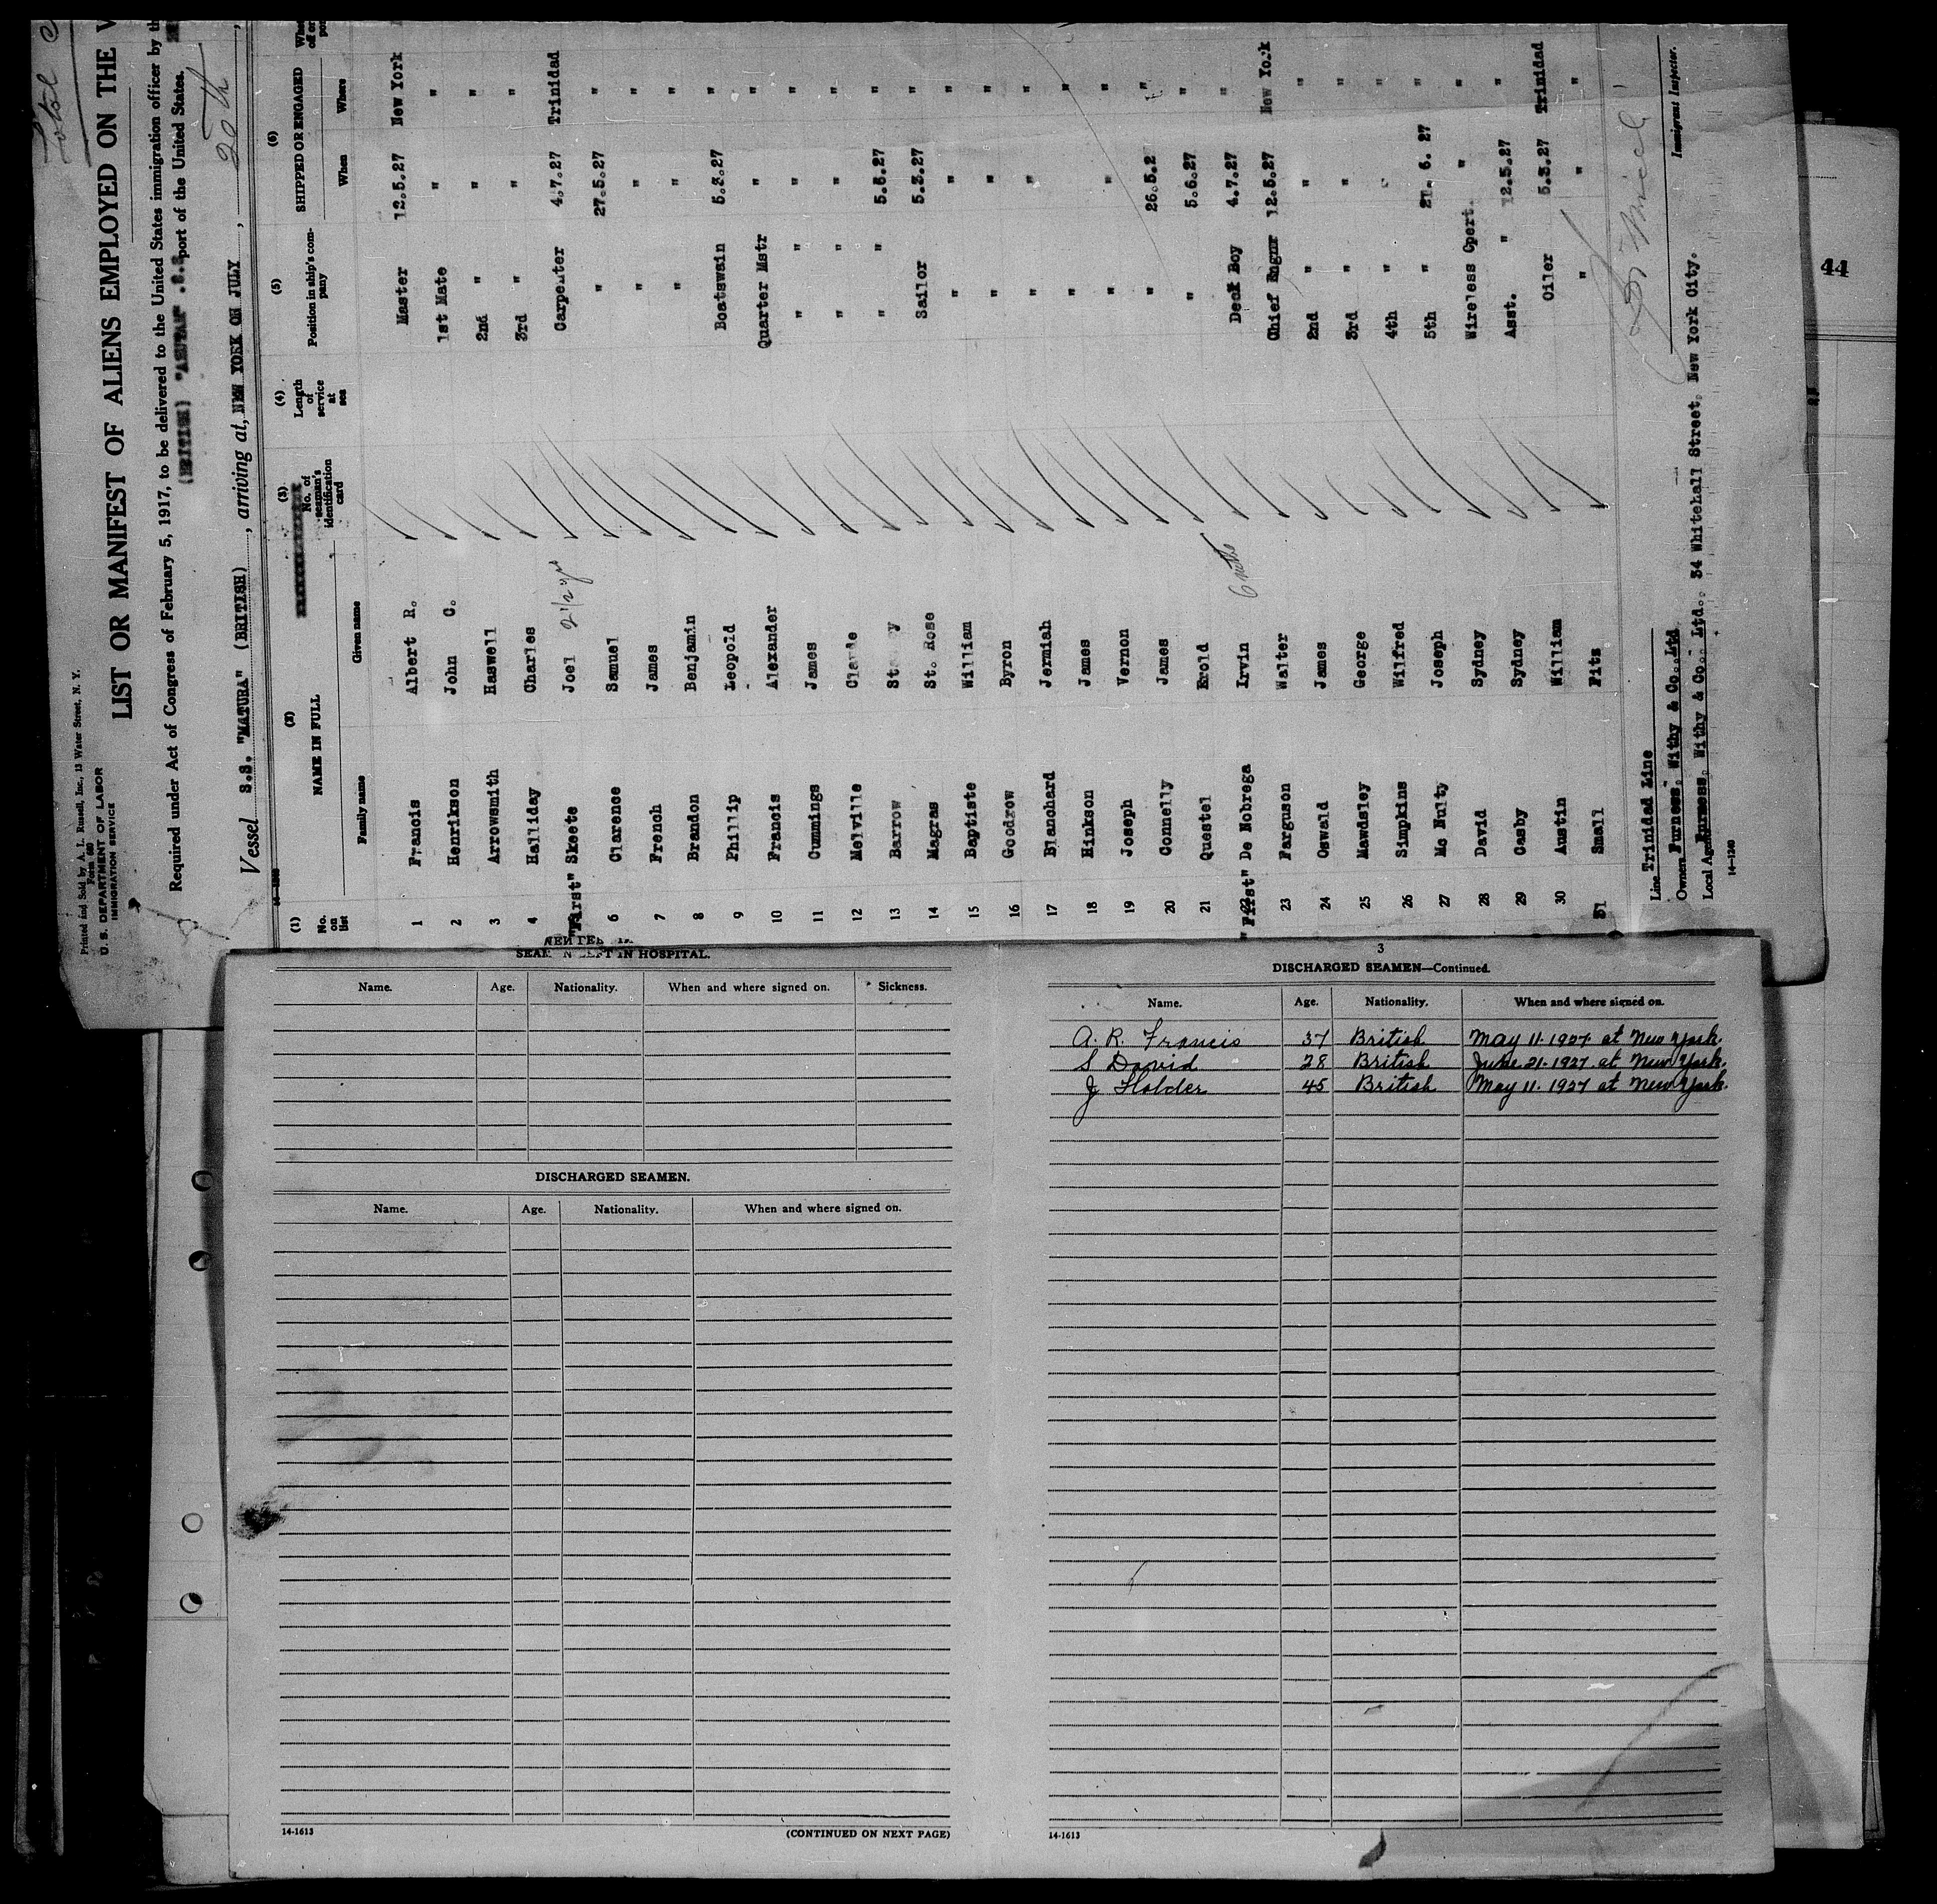 Total
Printed and Sold by A. I. Russell, Inc., 13 Water Street, N. Y.
Form 680
U. S. DEPARTMENT OF LABOR
IMMIGRATION SERVICE
LIST OR MANIFEST OF ALIENS EMPLOYED ON THE V
Required under Act of Congress of February 5, 1917, to be delivered to the United States immigration officer by th
port of the United States.
Vessel S.S. "MATURA" (BRITISH), arriving at, NEW YORK ON JULY, 20th,
(1) (2) (3) (4) (5) (6)
No. on list NAME IN FULL No. of seaman's identification card Length of service at sea Position in ship's company SHIPPED OR ENGAGED
Family name Given name When Where
1 Francis Albert R. Master 12.5.27 New York
2 Henrikson John C. 1st Mate " "
3 Arrowsmith Haswell 2nd " " "
4 Halliday Charles 3rd " " "
"First" Skeete Joel 2 1/2 yrs Carpenter 4.7.27 Trinidad
6 Clarence Samuel " 27.5.27 "
7 French James " " "
8 Brandon Benjamin " " "
9 Phillip Leopold Boatswain 5.3.27 "
10 Francis Alexander Quarter Mstr " "
11 Cummings James " " " "
12 Melville Claude " " " "
13 Barrow " " 5.5.27 "
14 Magras St. Rose Sailor 5.3.27 "
15 Baptiste William " " "
16 Goodrow Byron " " "
17 Blanchard Jermiah " " "
18 Hinkson James " "
19 Joseph Vernon " " "
20 Connelly James " 26.5.2 "
21 Questel Erold " 5.6.27 "
"First" De Nobrega Irvin 6 mths Deck Boy 4.7.27 "
23 Farguson Walter Chief Engnr 12.5.27 New York
24 Oswald James 2nd " " "
25 Mawdsley George 3rd " " "
26 Simpkins Wilfred 4th " " "
27 Mc Nulty Joseph 5th " 21.6.27 "
28 David Sydney Wireless Opert. " "
29 Casby Sydney Asst. " 12.5.27 "
30 Austin William Oiler 5.3.27 Trinidad
31 Small Fits " " "
Line Trinidad Line
Immigrant Inspector.
Owner Furness, Withy & Co., Ltd
Local Agent Furness, Withy & Co., Ltd., 34 Whitehall Street, New York City.
14-1240
44
SEAMEN LEFT IN HOSPITAL.
Name. Age. Nationality. When and where signed on. Sickness.
DISCHARGED SEAMEN.
Name. Age. Nationality. When and where signed on.
14-1613
(CONTINUED ON NEXT PAGE)
3
DISCHARGED SEAMEN—Continued.
Name. Age. Nationality. When and where signed on.
A. R. Francis 37 British May 11. 1927. at New York.
S David 28 British June. 21. 1927. at New York.
J Holder 45 British May 11. 1927 at New York.
14-1613